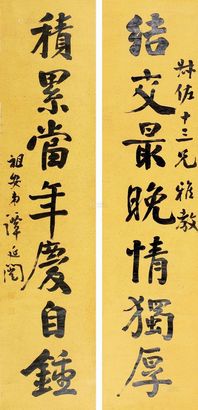 叔佐十三兄雅教
结交最晚情獨厚
積累當年慶自鍾
祖安弟譚延闓